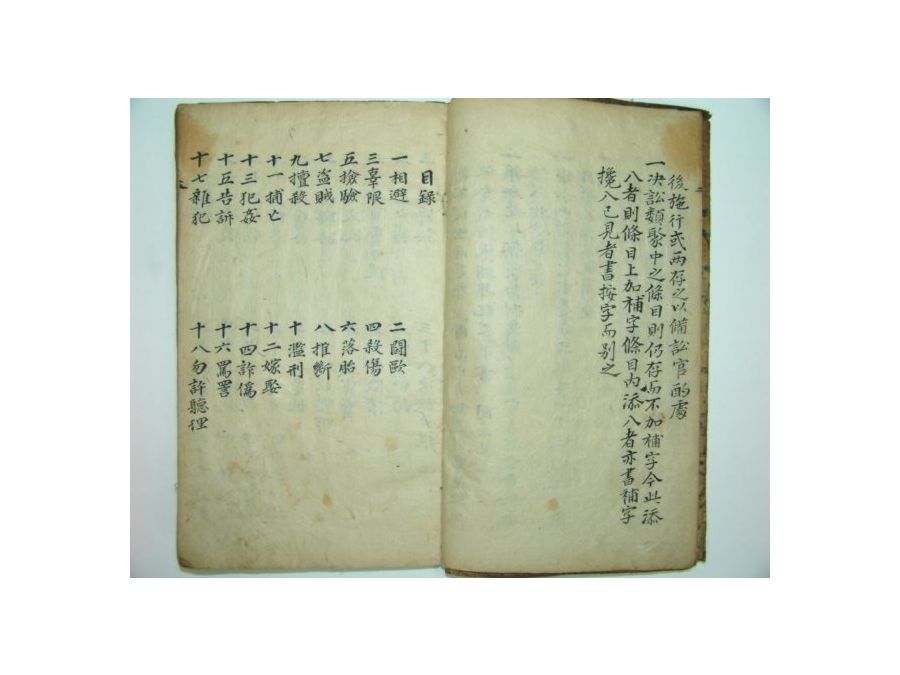 後施行或兩存之以備訟官酌處
一決訟類聚中之條目則仍存而不加補字今此添
入者則條目上加補字條目內添入者亦書補字
攙入已見者書按字而別之
目錄
一相避 二鬪毆
三辜限 四殺傷
五撿驗 六落胎
七盜賊 八推斷
九擅殺 十濫刑
十一捕亡 十二嫁娶
十三犯姦 十四詐僞
十五告訴 十六罵詈
十七雜犯 十八勿許聽理